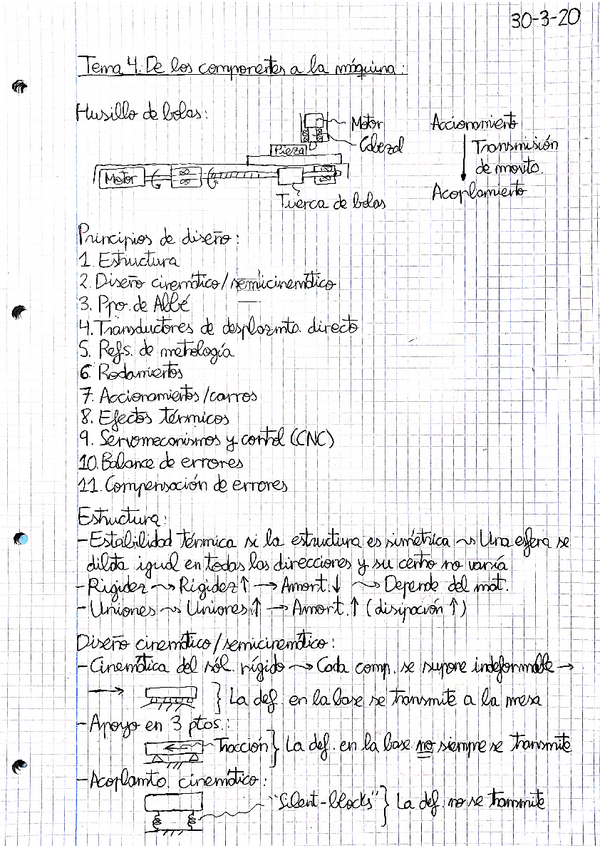 30-3-20
Tema 4. De los componentes a la máquina:
Husillo de bolas:
Motor
Cabezal
Pieza
Motor
Tuerca de bolas
Accionamiento
Transmisión
de movto.
Acoplamiento
Principios de diseño:
1. Estructura
2. Diseño cinemático/semicinemático
3. Ppo. de Abbé
4. Transductores de desplazmto. directo
5. Refs. de metrología
6. Rodamientos
7. Accionamientos/carros
8. Efectos térmicos
9. Servomecanismos y control (CNC)
10. Balance de errores
11. Compensación de errores
Estructura:
- Estabilidad térmica si la estructura es simétrica ~> Una esfera se
dilata igual en todas las direcciones y su centro no varía
- Rigidez ~> Rigidez ↑ → Amort. ↓ ~> Depende del mat.
- Uniones ~> Uniones ↑ → Amort. ↑ (disipación ↑)
Diseño cinemático/semicinemático:
- Cinemática del sól. rígido ~> Cada comp. se supone indeformable →
→ } La def. en la base se transmite a la mesa
- Apoyo en 3 ptos.:
Tracción } La def. en la base no siempre se transmite
- Acoplamto. cinemático:
"Silent-blocks" } La def. no se transmite